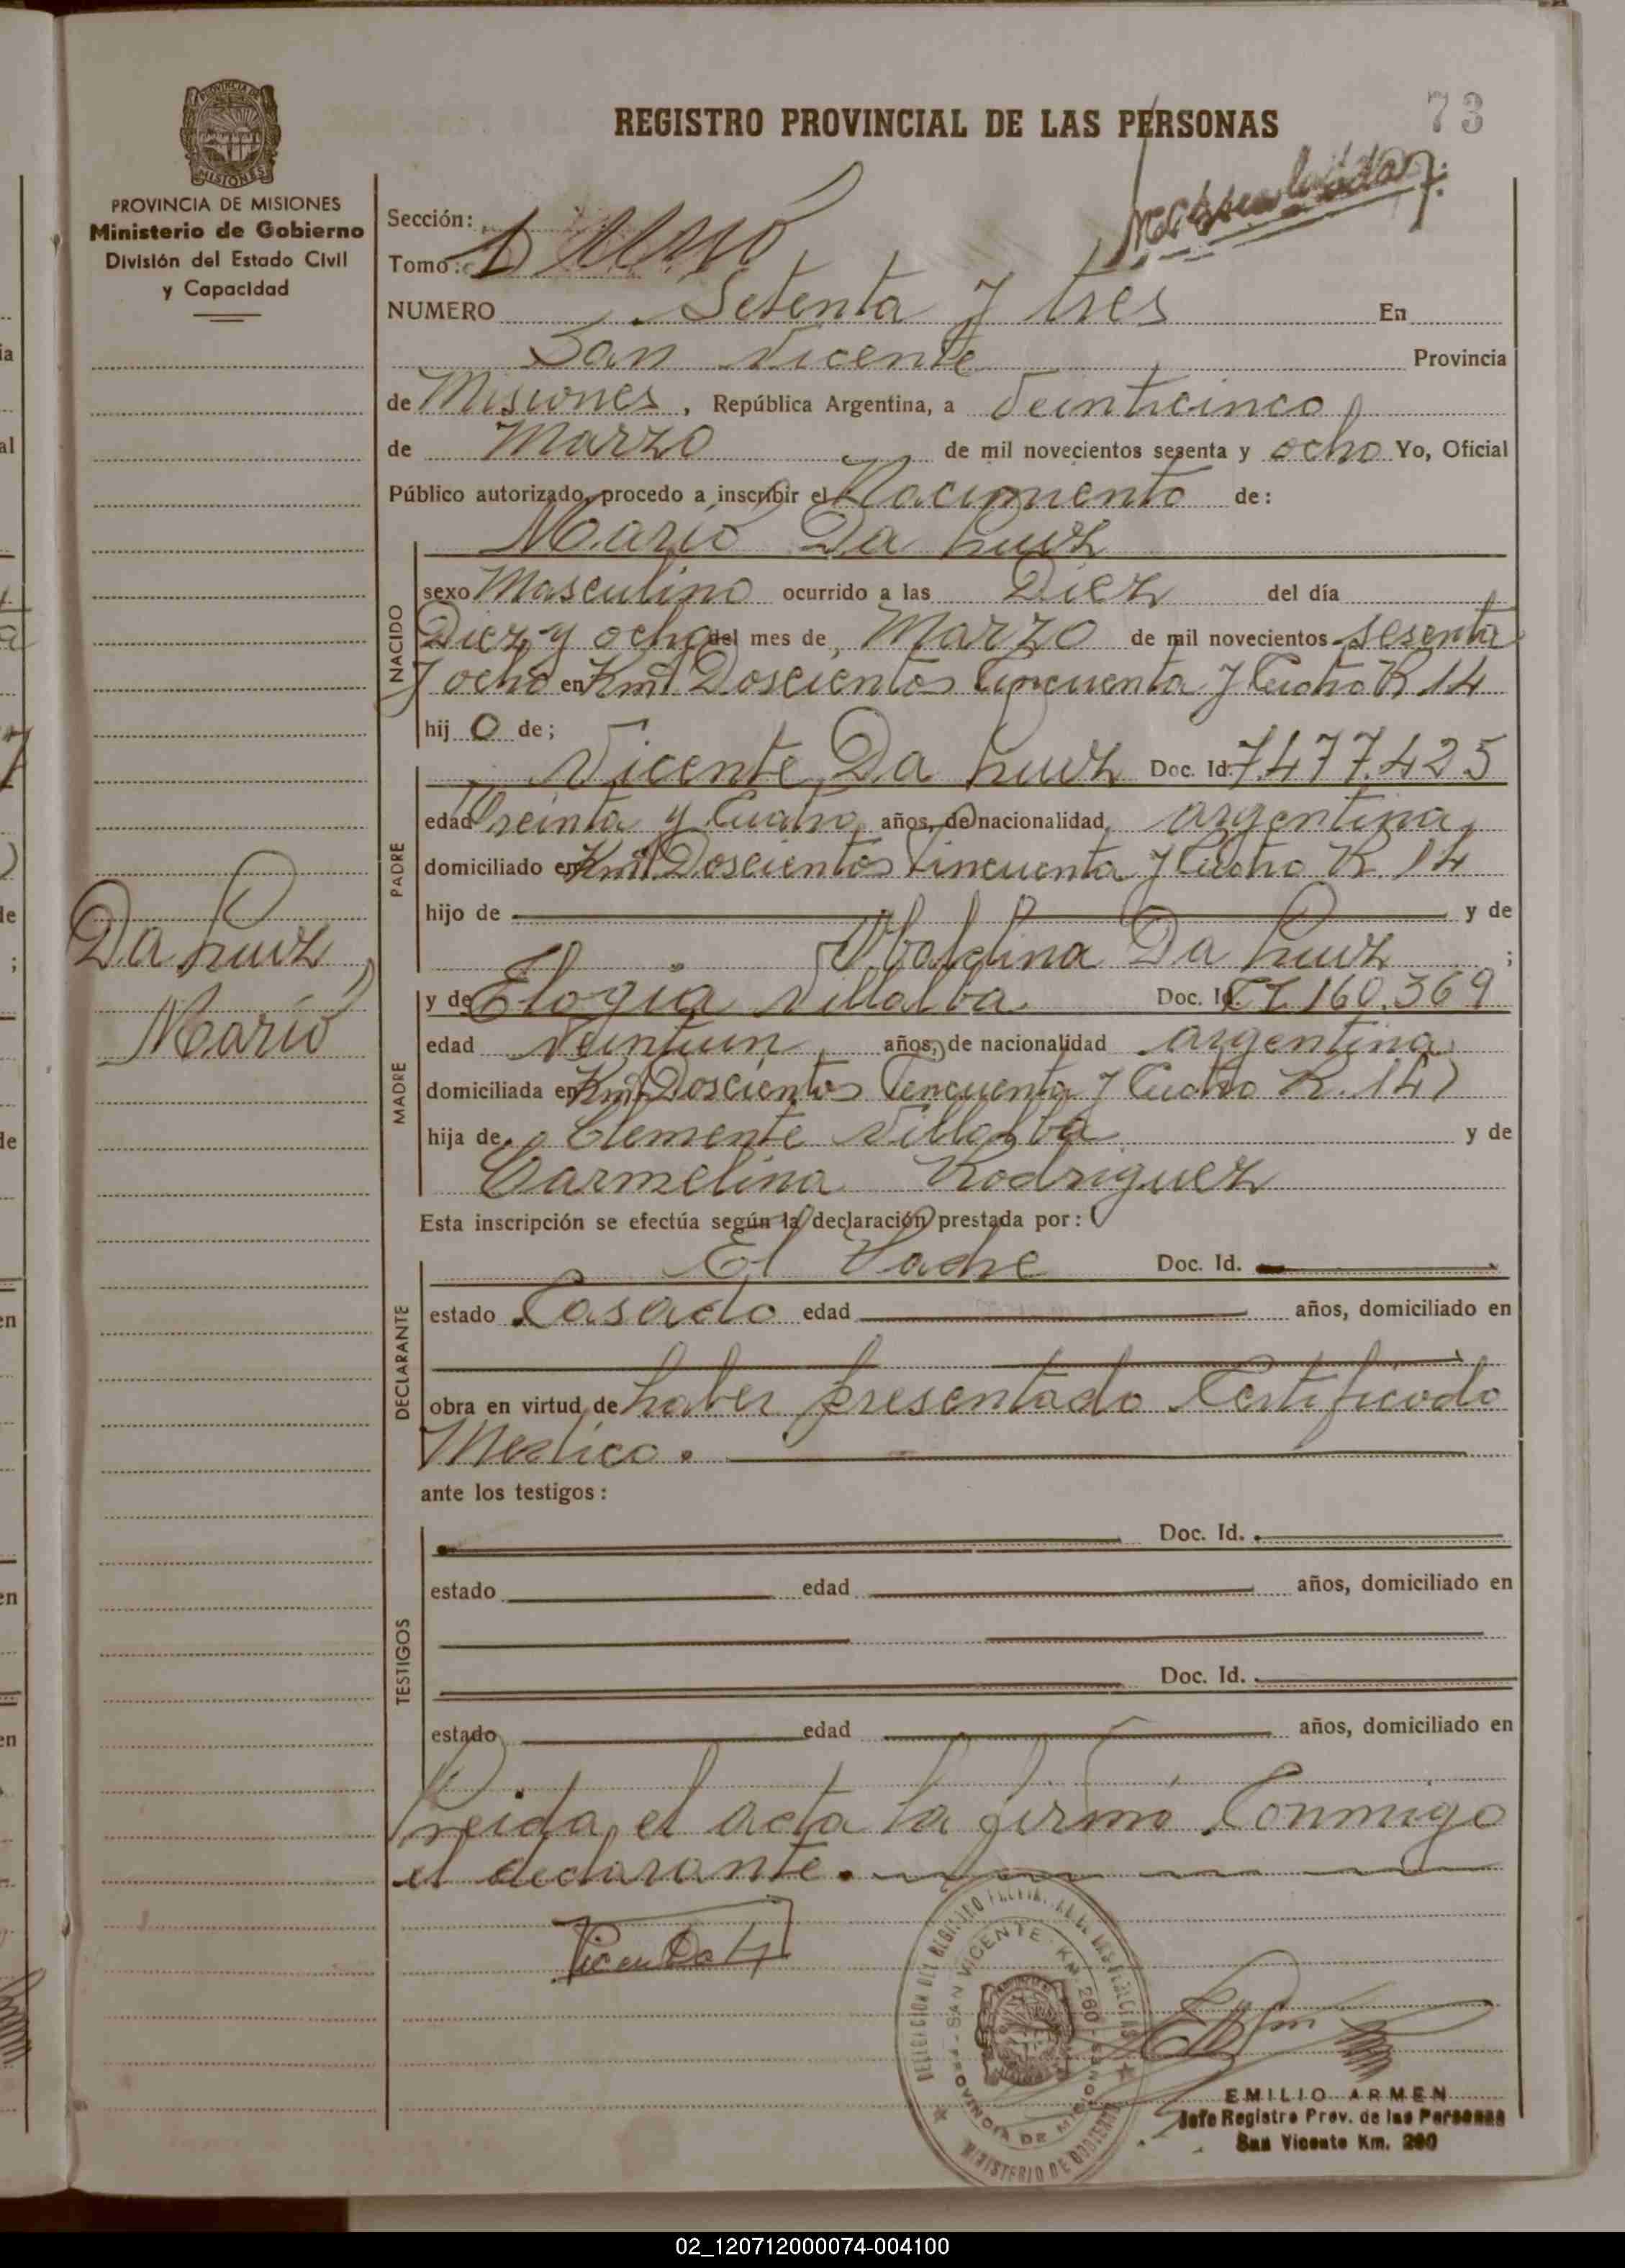 73
REGISTRO PROVINCIAL DE LAS PERSONAS
PROVINCIA DE MISIONES
Ministerio de Gobierno
División del Estado Civil
y Capacidad
Sección:
Tomo:
NUMERO Setenta y tres En
San Vicente Provincia
de Misiones, República Argentina, a Veinticinco
de Marzo de mil novecientos sesenta y ocho Yo, Oficial
Público autorizado, procedo a inscribir el Nacimiento de:
Mario Da Luz
NACIDO
sexo Masculino ocurrido a las Diez del día
Diez y ocho del mes de Marzo de mil novecientos sesenta
y ocho en Km. Doscientos Cincuenta y Cuatro R 14
hij o de;
PADRE
Vicente Da Luz Doc. Id. 7.477.425
edad Treinta y Cuatro años, de nacionalidad argentina
domiciliado en Km. Doscientos Cincuenta y Cuatro R. 14
hijo de y de
Da Luz ;
Da Luz
Mario
MADRE
y de Elogia Villalba Doc. Id. 160.369
edad Veintiun años, de nacionalidad argentina
domiciliada en Km. Doscientos Cincuenta y Cuatro R. 14
hija de Clemente Villalba y de
Carmelina Rodriguez
Esta inscripción se efectúa según la declaración prestada por:
DECLARANTE
El Padre Doc. Id.
estado Casado edad años, domiciliado en
obra en virtud de haber presentado Certificado
Medico.
ante los testigos:
TESTIGOS
Doc. Id.
estado edad años, domiciliado en
Doc. Id.
estado edad años, domiciliado en
Leida el acta la firmó Conmigo
el declarante.
SAN VICENTE - KM. 260
PROVINCIA DE MISIONES
MINISTERIO DE GOBIERNO
EMILIO ARMEN
Jefe Registro Prov. de las Personas
San Vicente Km. 260
02_120712000074-004100